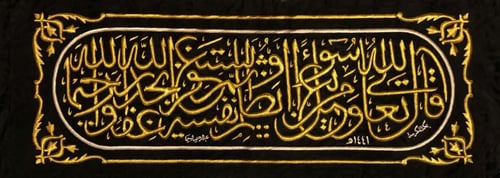 قال الله تعالى ومن يعمل سوءا أو يظلم نفسه ثم يستغفر الله يجد الله غفورا رحيما
١٤٤١هـ